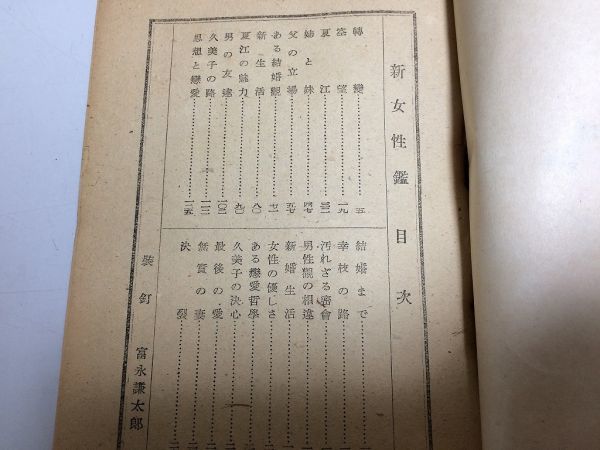 新女性鑑 目次
轉變……五
窓望……一九
夏江……三二
姉と妹……四七
父の立場……五七
ある結婚觀……七一
新生活……八〇
夏江の魅力……九〇
男の友達……一〇二
久美子の路……一一三
思想と戀愛……一二五
結婚まで……
幸枝の路……
汚れざる密會……
男性觀の相違……
新婚生活……
女性の優しさ……
ある戀愛哲學……
久美子の決心……
最後の愛……
無實の妻……
決裂……
裝釘 富永謙太郎